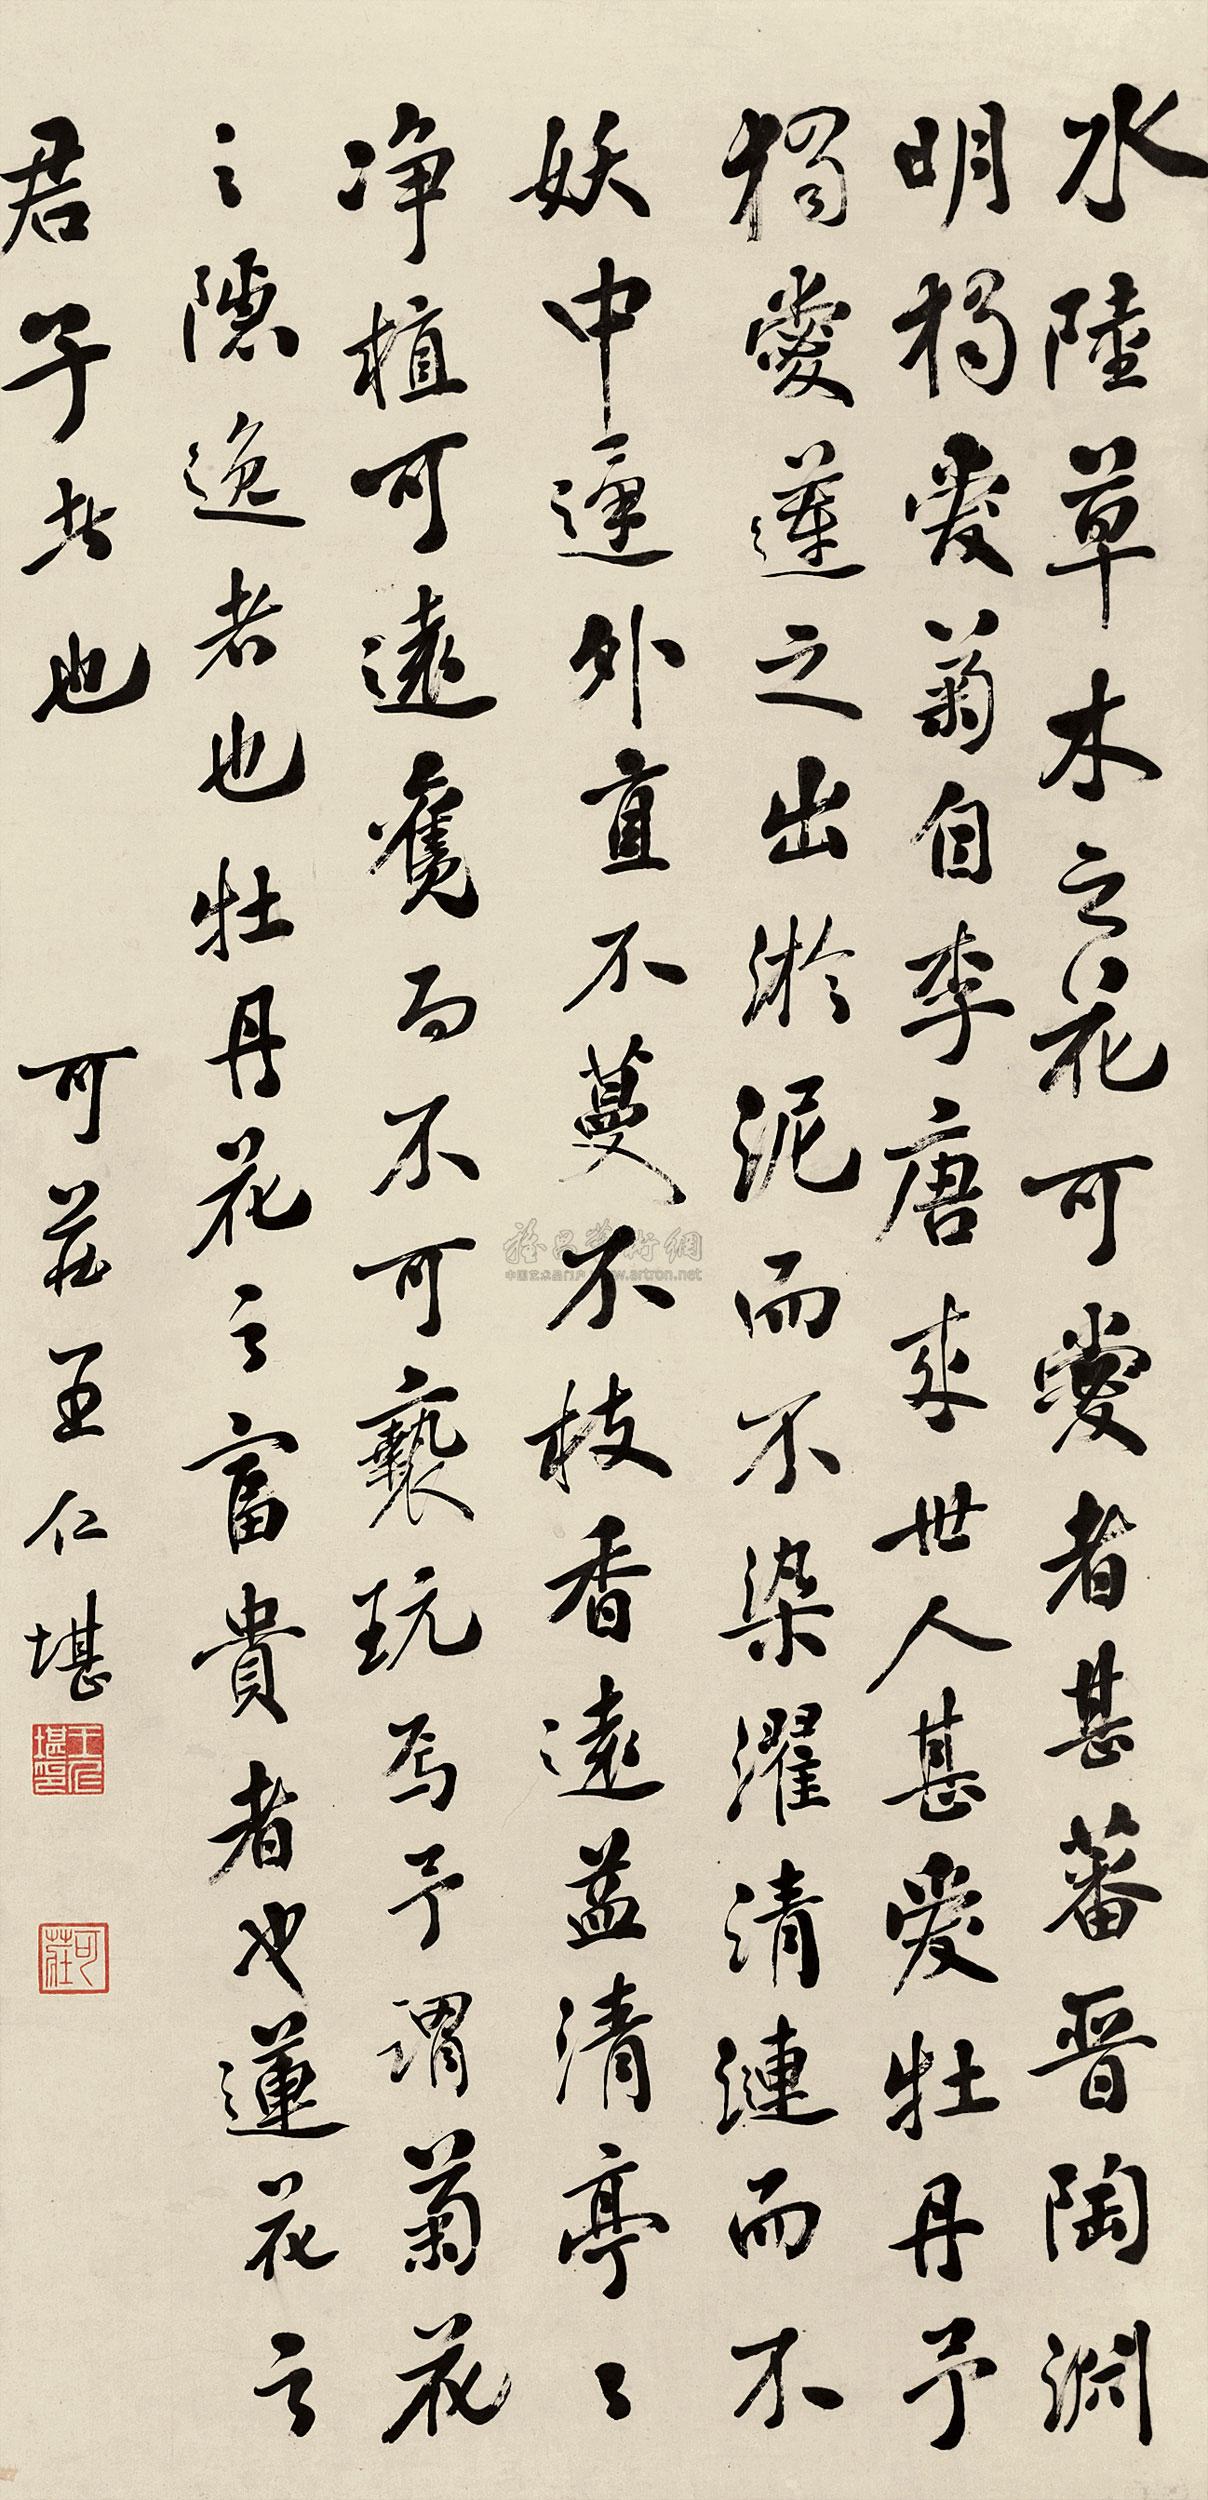 水陸草木之花可愛者甚蕃晉陶淵
明獨愛菊自李唐來世人甚愛牡丹予
獨愛蓮之出淤泥而不染濯清漣而不
妖中通外直不蔓不枝香遠益清亭〻
净植可遠觀而不可褻玩焉予謂菊花
之隱逸者也牡丹花之富貴者也蓮花之
君子者也
可莊王仁堪
王仁堪印
可莊
中国艺术品门户 www.artron.net